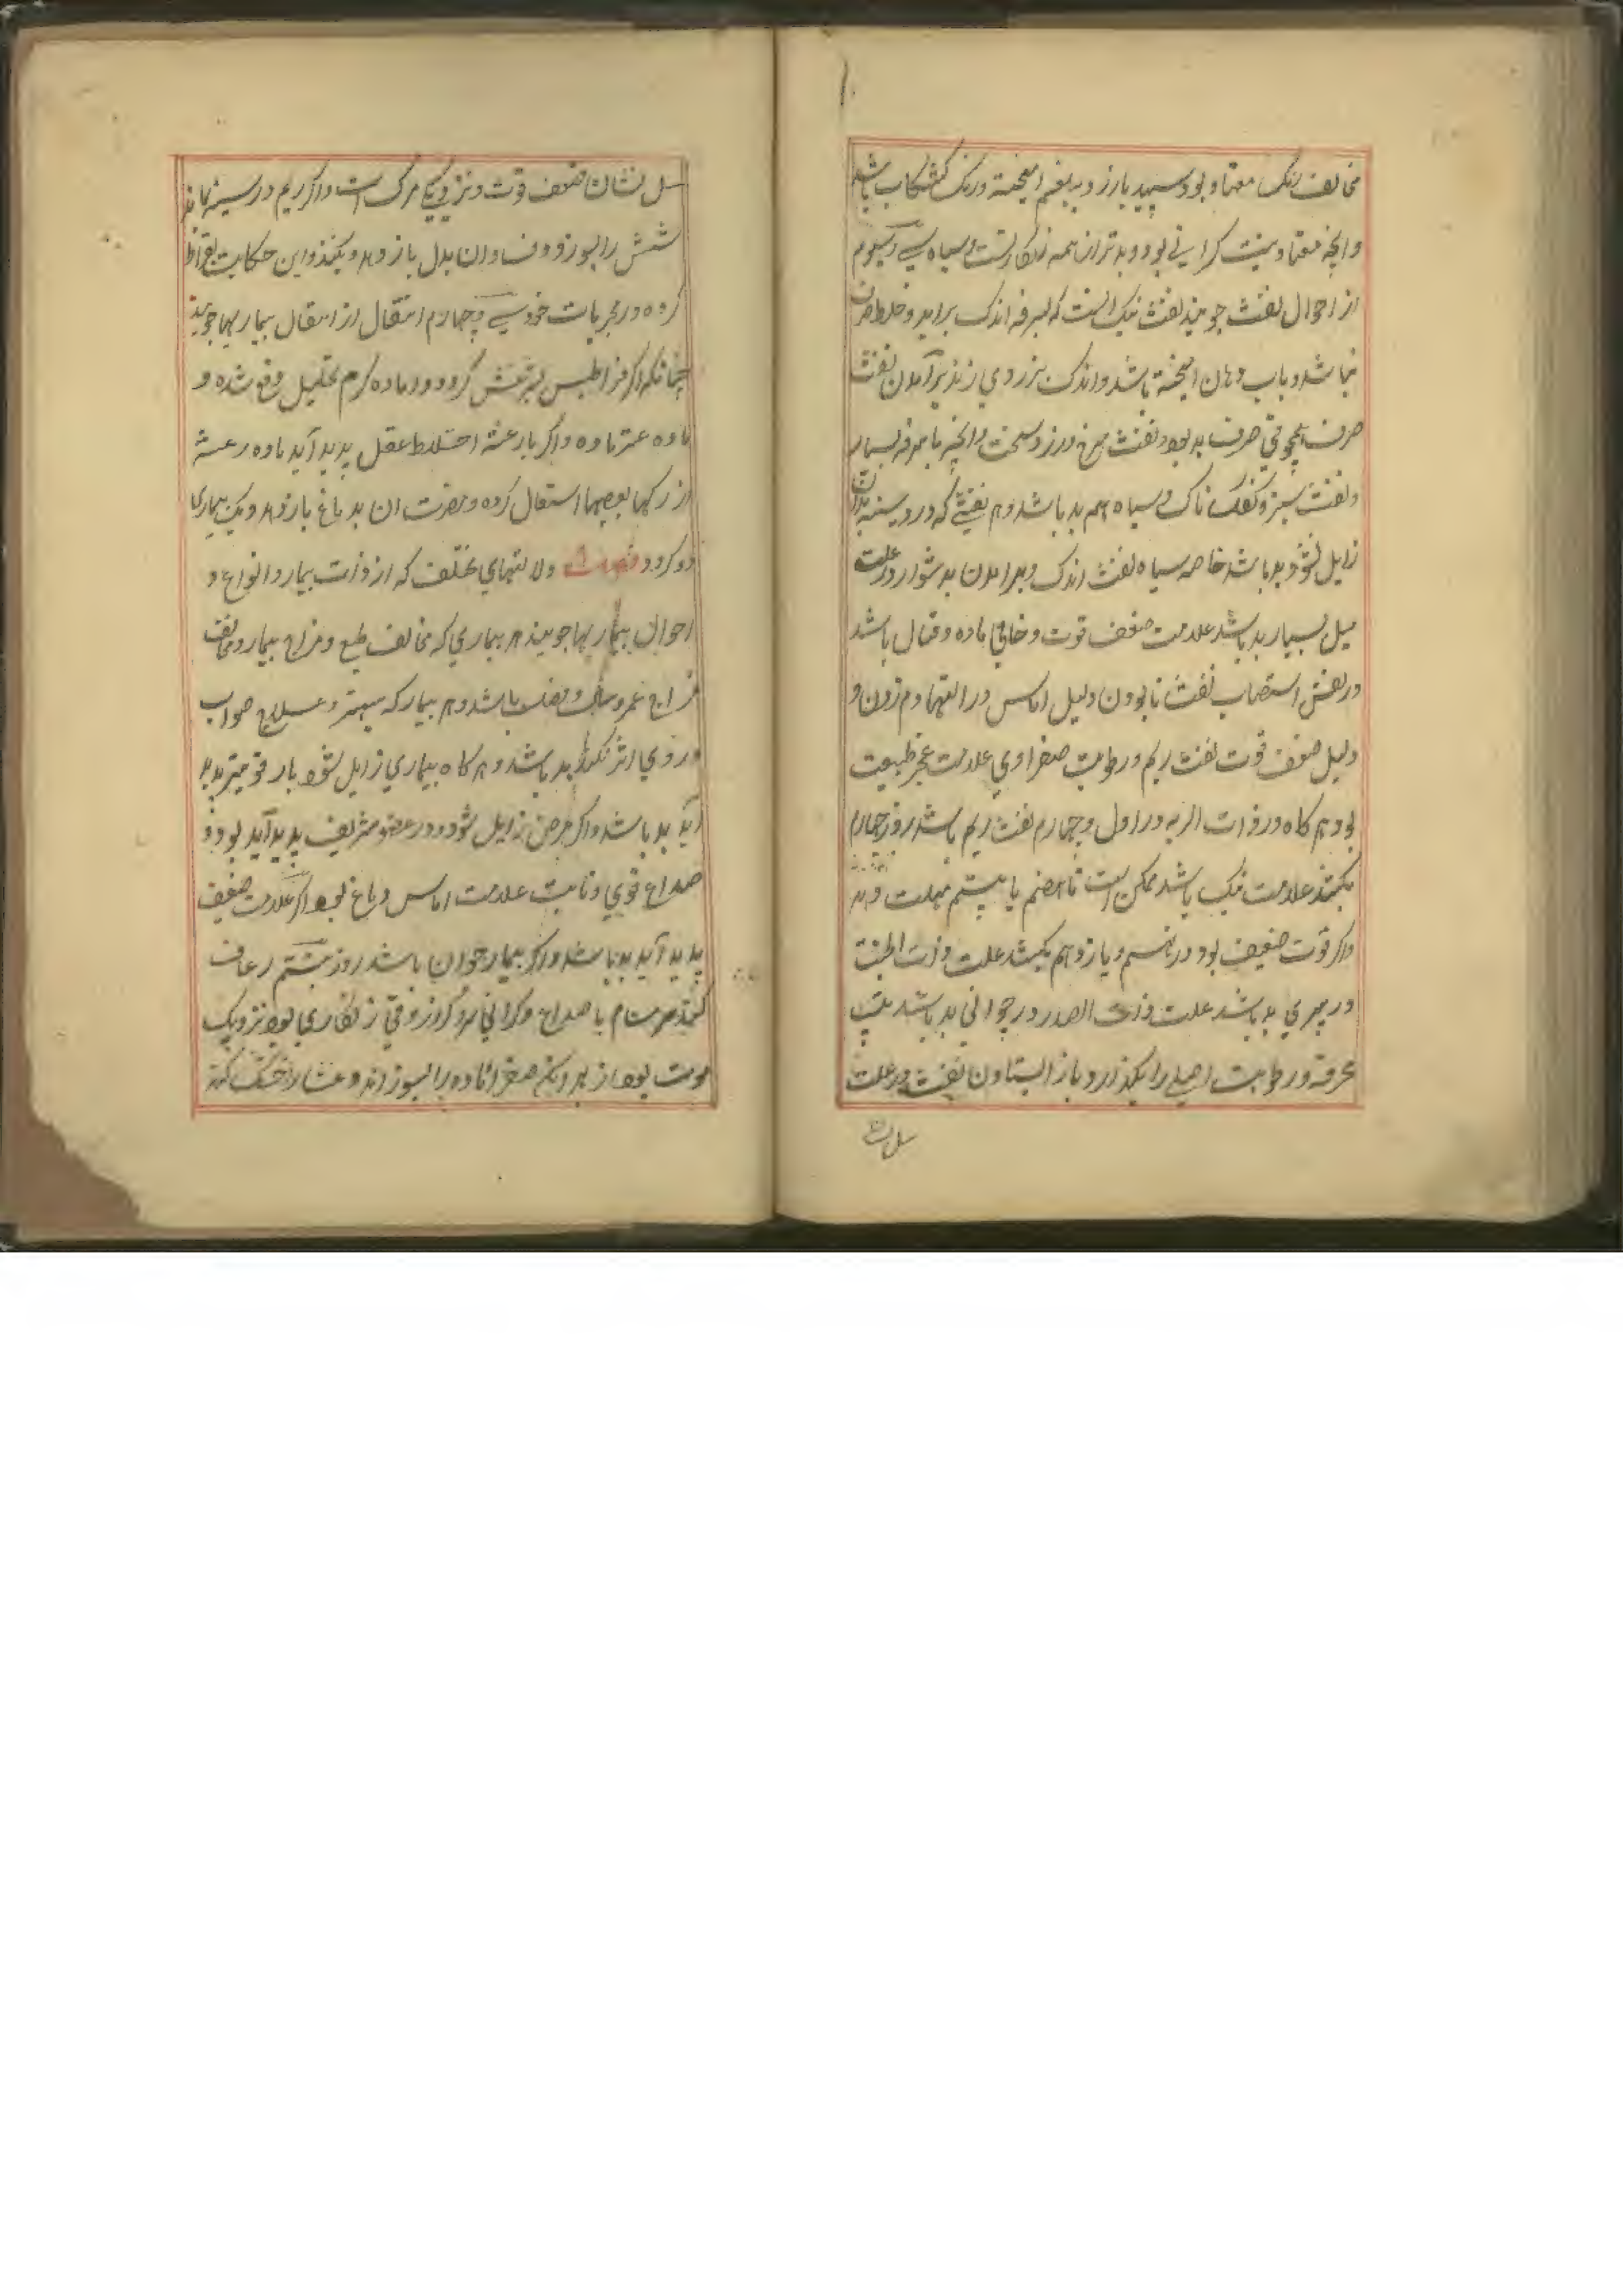 مخالف رنک معتاد بود سپید یا زرد و ببلغم امیخته و رنک کشکاب باشد
وانچه معتاد نیست کراثی بود و بدتر از همه زنکاریست و سیاه سیوم
از احوال نفث جویند نفث نیک انست که بسرفه اندک براید و خلط صرف
نباشد و باب دهان امیخته باشد و اندک بزردی زند برآمدن نفث
صرف همچو قی صرف بد بود و نفث سرخ و زرد سخت وانچه با سرفه بسیار
و نفث سبز و کفک ناک و سیاه هم بد باشد و هر نفثی که درد سینه بدان
زایل نشود بد باشد خاصه سیاه نفث اندک و برامدن بدشوار در علت
سل بسیار بد باشد علامت ضعف قوت و خامی ماده و قتال باشد
و در نفس انتصاب نفث نابودن دلیل اماس و را التهاء دم زدن و
دلیل ضعف قوت نفث ریم و رطوبت صفراوی علامت عجز طبیعت
بود هر کاه در ذات الریه در اول و چهارم نفث ریم باشد روز چهارم
بکشد علامت نیک باشد ممکن است تا هفتم یا بیستم مهلت دهد
واکر قوت ضعیف بود در نهم و یازدهم بکشد علت ذات الجنب
در پیری بد باشد علت ذات الصدر در جوانی بد باشد تب
محرقه و رطوبت اصلی را بکذارد باز ایستادن نفث در علت
سل ن
سل نشان ضعف قوت و نزدیکی مرک است واکر ریم در سینه بماند
شش را بسوزد و فساد ان بدل باز دهد و بکشد و این حکایت بقراط
کرده در مجربات خود سی و چهارم انتقال از انتقال بیماریها جویند
چنانکه اکر قرانیطس لیثرغش کردد و ماده کرم تحلیل دفع شده و
ماده ماده واکر با رعشه اختلاط عقل پدید آید ماده رعشه
از رکها بعصبها انتقال کرده و مضرت ان بدماغ باز دهد و یک بیماری
دو کردد ولالتهای مختلف که از ذات بیمار و انواع و
احوال بیماریها جویند هر بیماری که مخالف طبع و مزاج بیمار و مخالف
مزاج عمر و سال و فصل باشد و هر بیمار که بهتر و علاج صواب
در وی اثر نکند بد باشد و هر کاه بیماری زایل شود بار قویتر پدید
آید بد باشد واکر مرض زایل شود و در عضو شریف پدید آید بود و
صداع قوی و ثابت علامت اماس دماغ بود اکر علامت ضعیف
پدید آید بد باشد واکر بیمار جوان باشد روز بیستم رعاف
کند سرسام با صداع و کرانی سر و کزاز و قی زنکاری بود نزدیک
موت بود از بهر انکه صفرا ماده را بسوزاند و غشا را خشک کند